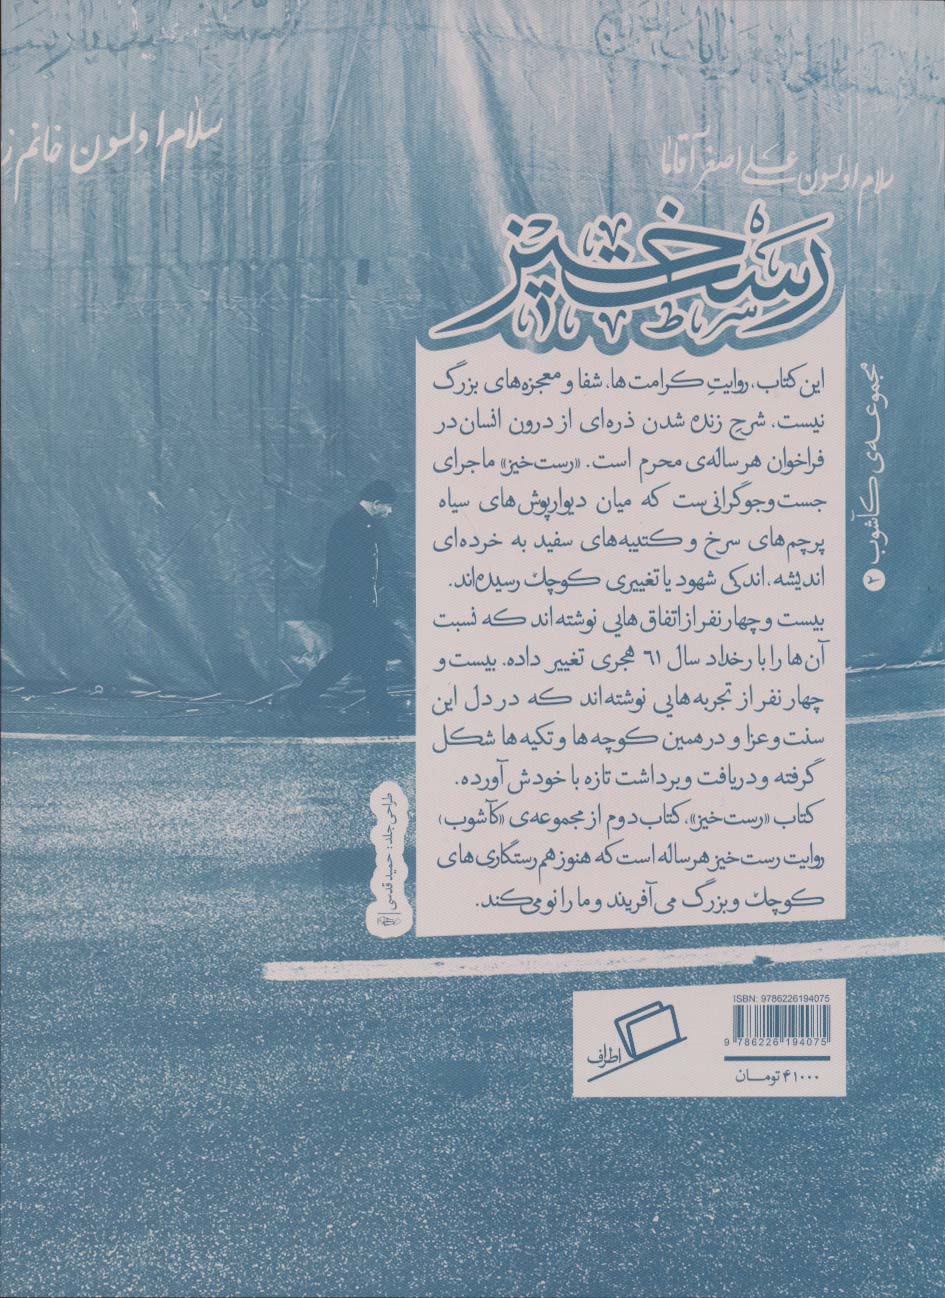 سلام اولسون خانم
سلام اولسون علی اصغر آقاما
رست‌خیز
مجموعه‌ی کآشوب ۲
این کتاب، روایتِ کرامت‌ها، شفا و معجزه‌های بزرگ
نیست، شرحِ زنده شدن ذره‌ای از درون انسان در
فراخوان هرساله‌ی محرم است. «رست‌خیز» ماجرای
جست‌وجوگرانی‌ست که میان دیوارپوش‌های سیاه
پرچم‌های سرخ و کتیبه‌های سفید به خرده‌ای
اندیشه، اندکی شهود یا تغییری کوچک رسیده‌اند.
بیست و چهار نفر از اتفاق‌هایی نوشته‌اند که نسبت
آن‌ها را با رخداد سال ۶۱ هجری تغییر داده. بیست و
چهار نفر از تجربه‌هایی نوشته‌اند که در دل این
سنت و عزا و در همین کوچه‌ها و تکیه‌ها شکل
گرفته و دریافت و برداشت تازه با خودش آورده.
کتاب «رست‌خیز»، کتاب دوم از مجموعه‌ی «کآشوب»
روایت رست‌خیز هرساله است که هنوز هم رستگاری‌های
کوچک و بزرگ می‌آفریند و ما را نو می‌کند.
طراحی جلد: حمید قدسی
اطراف
ISBN: 9786226194075
9 786226 194075
۴۱۰۰۰ تومان